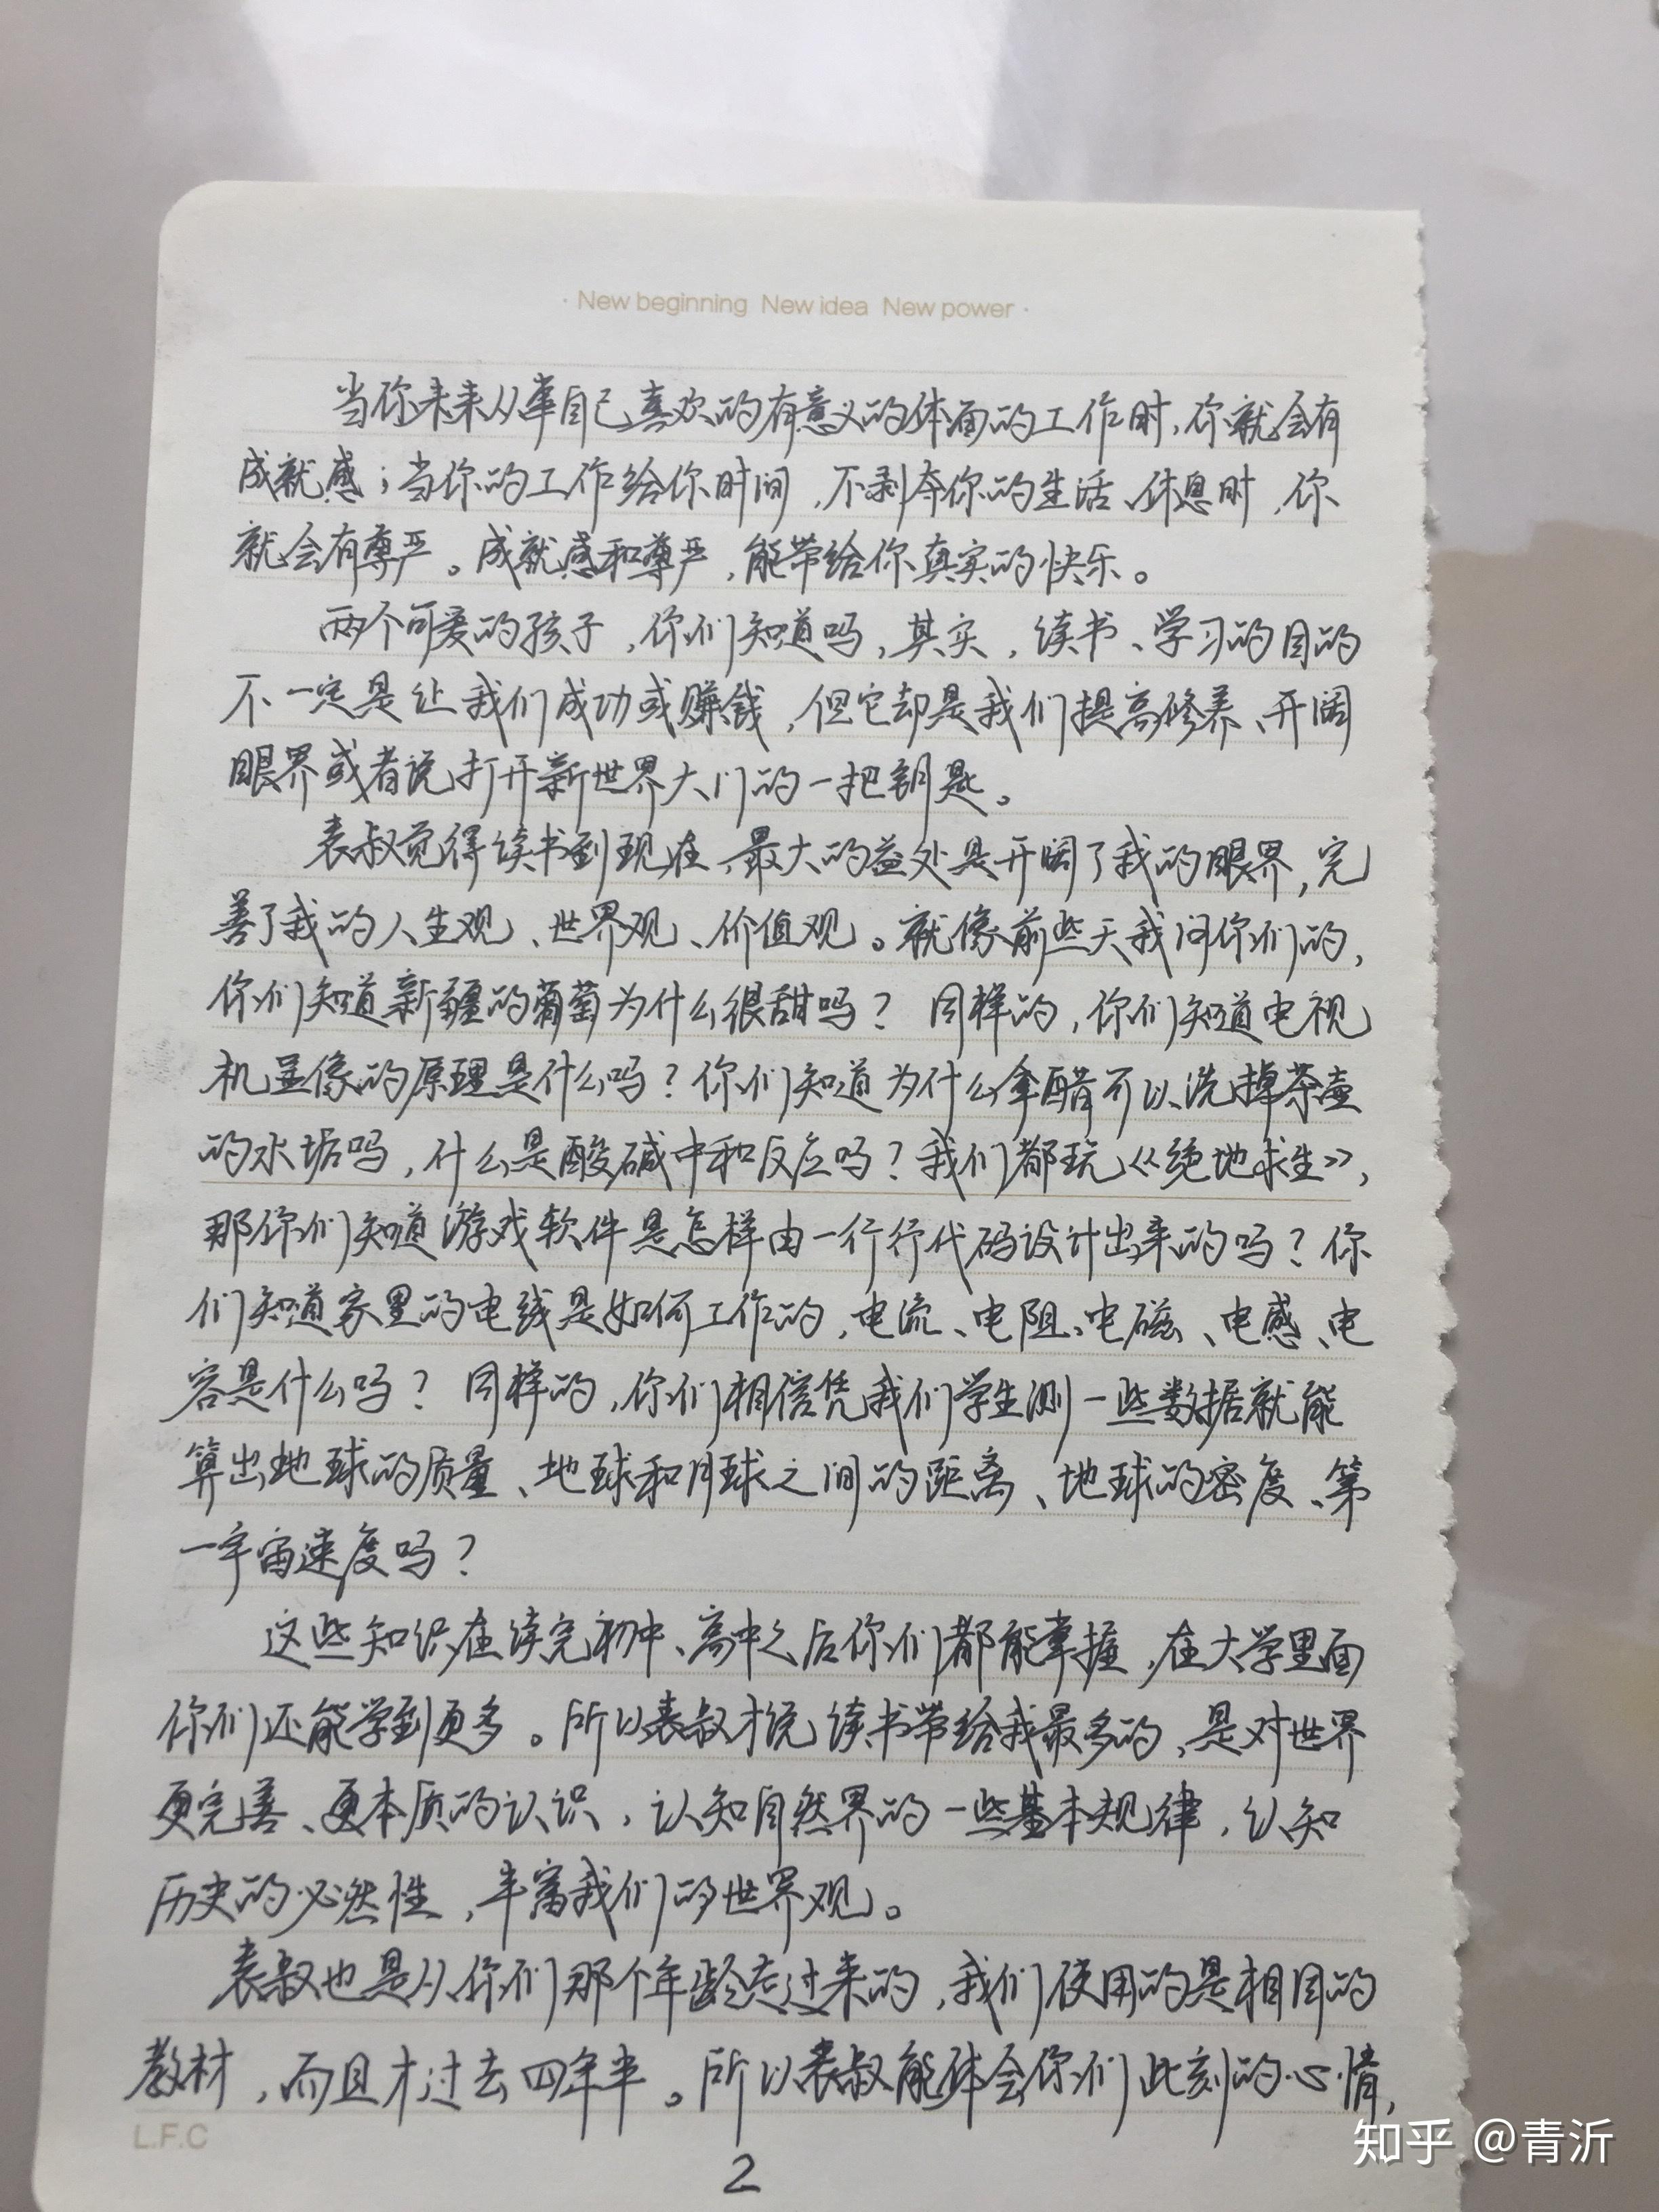 · New beginning New idea New power ·
当你未来从事自己喜欢的有意义的体面的工作时,你就会有
成就感;当你的工作给你时间,不剥夺你的生活、休息时,你
就会有尊严。成就感和尊严,能带给你真实的快乐。
两个可爱的孩子,你们知道吗,其实,读书、学习的目的
不一定是让我们成功或赚钱,但它却是我们提高修养、开阔
眼界或者说打开新世界大门的一把钥匙。
表叔觉得读书到现在,最大的益处是开阔了我的眼界,完
善了我的人生观、世界观、价值观。就像前些天我问你们的,
你们知道新疆的葡萄为什么很甜吗?同样的,你们知道电视
机显像的原理是什么吗?你们知道为什么拿醋可以洗掉茶壶
的水垢吗,什么是酸碱中和反应吗?我们都玩《绝地求生》,
那你们知道游戏软件是怎样由一行行代码设计出来的吗?你
们知道家里的电线是如何工作的,电流、电阻、电磁、电感、电
容是什么吗?同样的,你们相信凭我们学生测一些数据就能
算出地球的质量、地球和月球之间的距离、地球的密度、第
一宇宙速度吗?
这些知识在读完初中、高中之后你们都能掌握,在大学里面
你们还能学到更多。所以表叔才说读书带给我最多的,是对世界
更完善、更本质的认识,认知自然界的一些基本规律,认知
历史的必然性,丰富我们的世界观。
表叔也是从你们那个年龄走过来的,我们使用的是相同的
教材,而且才过去四年半。所以表叔能体会你们此刻的心情,
L.F.C
2
知乎 @青沂